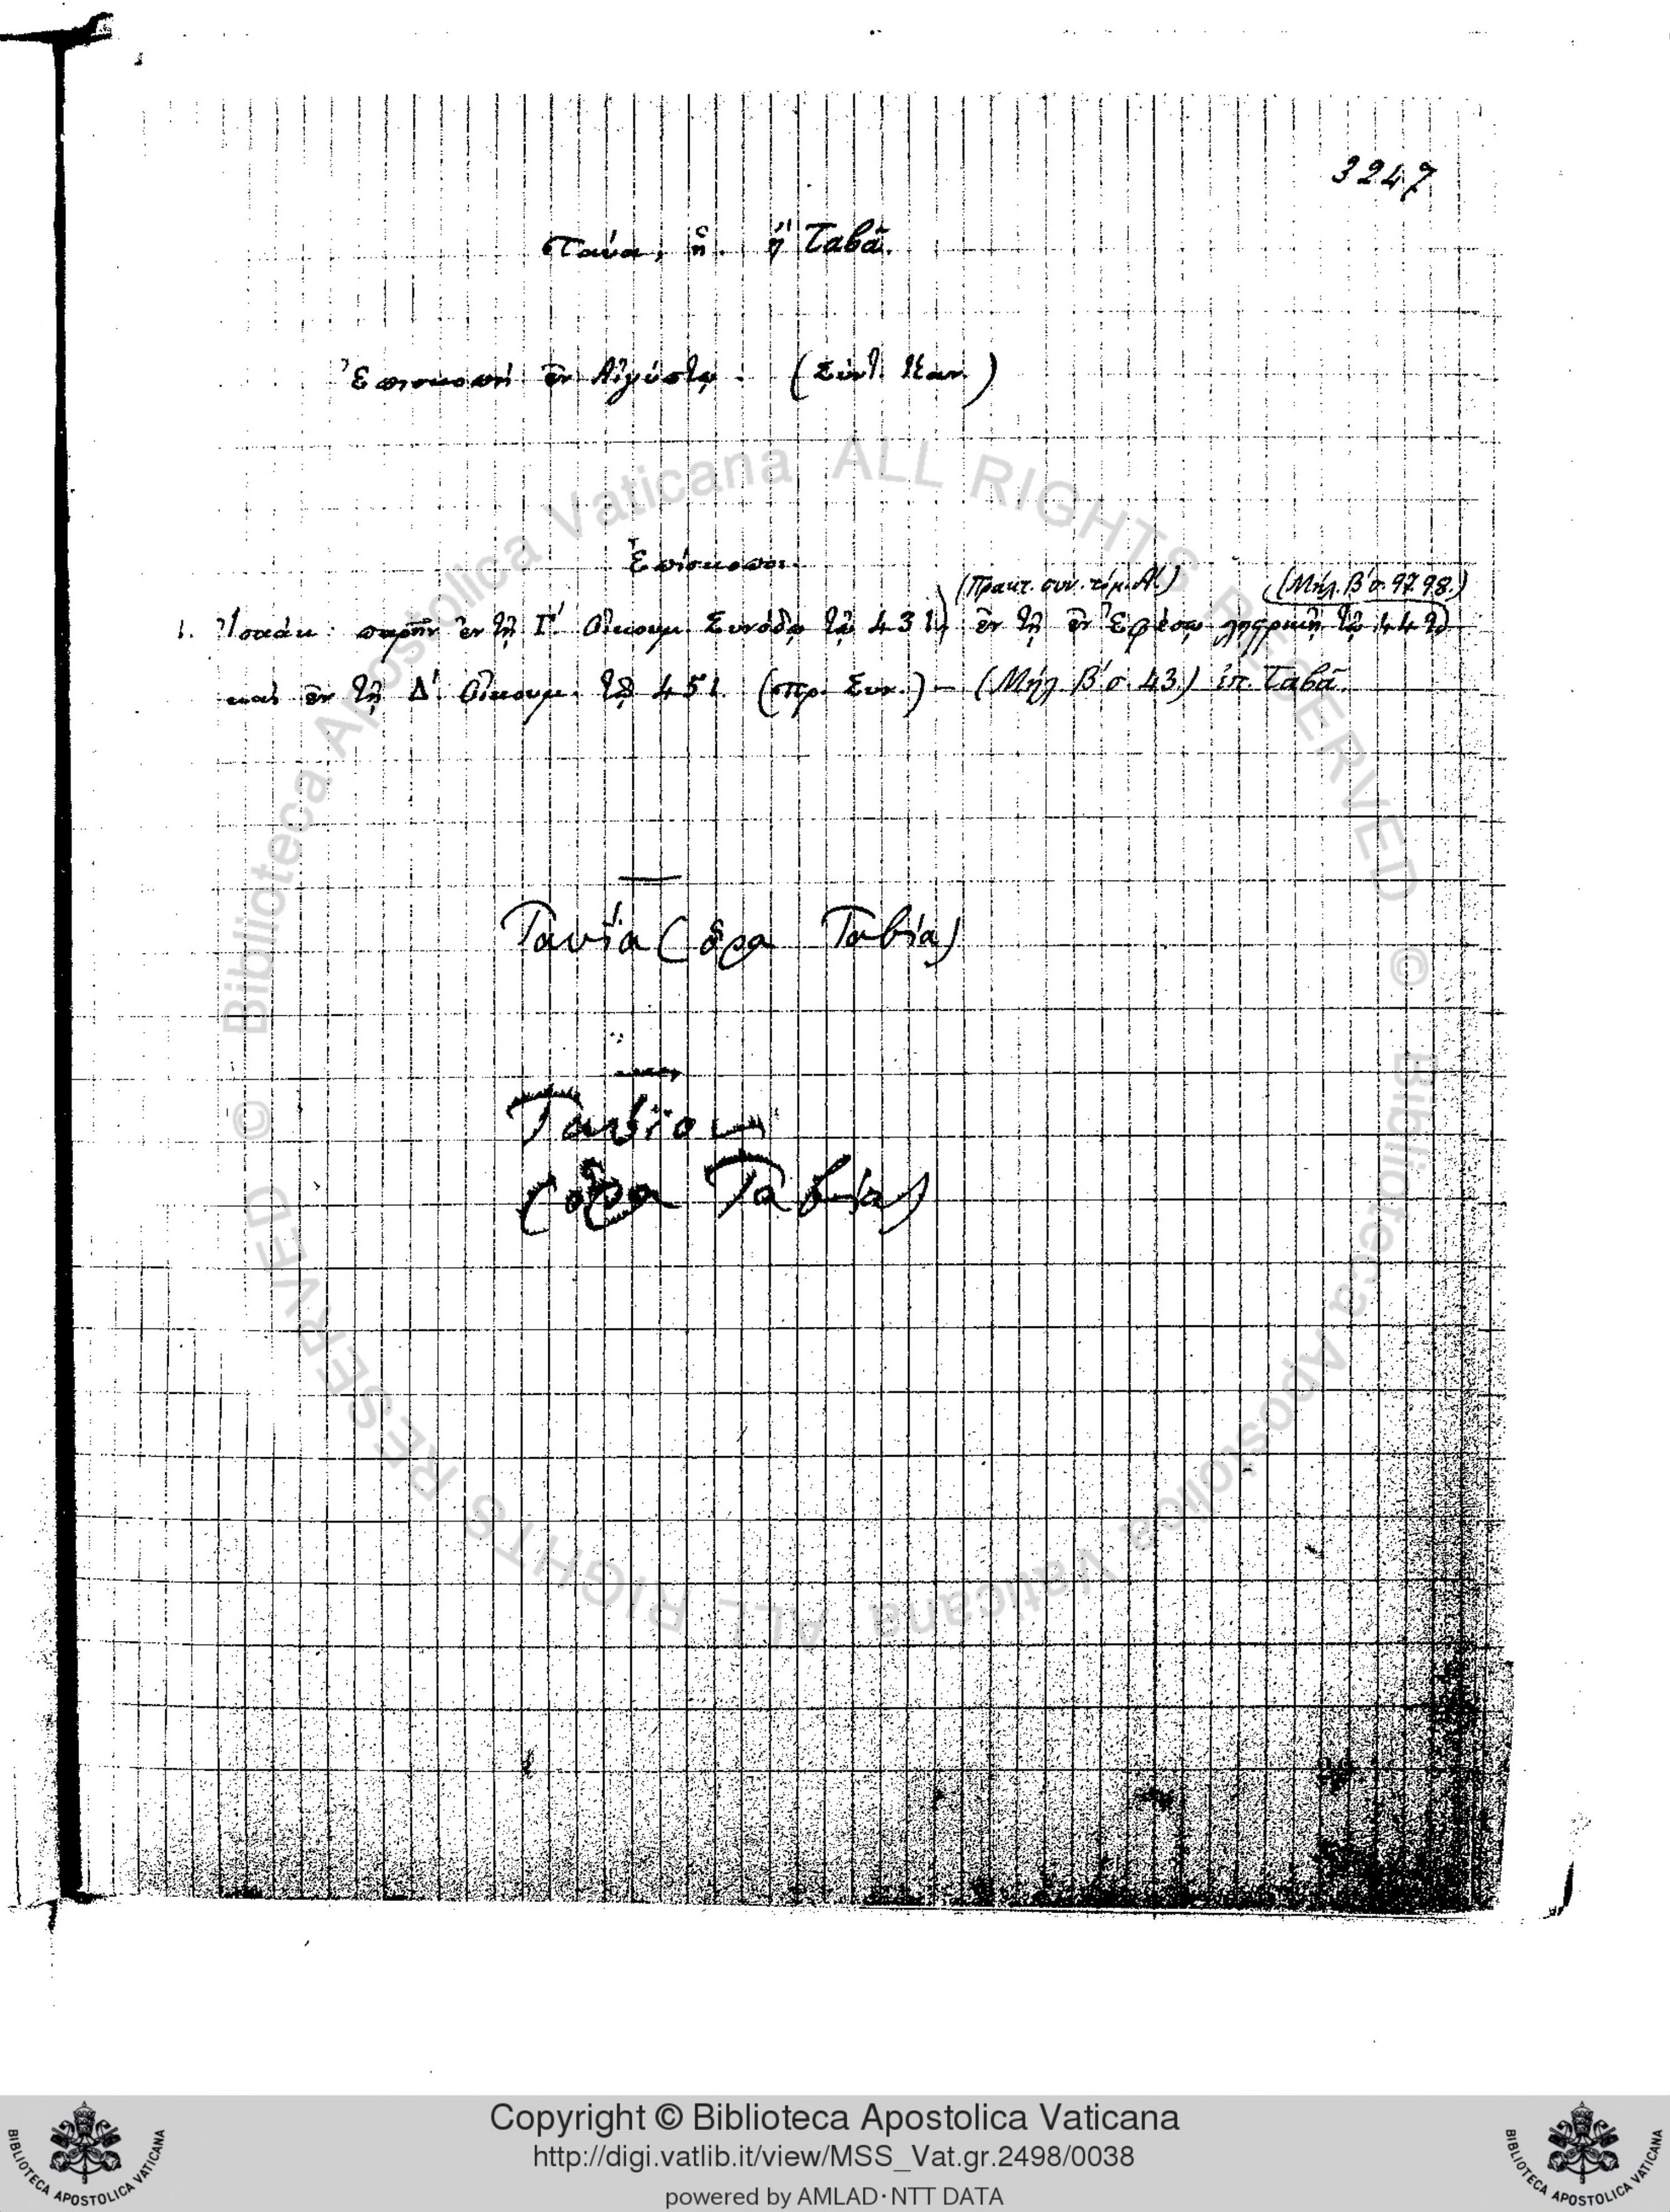 3247
Ταύα, ἡ. ἢ Ταβᾶ.
Ἐπισκοπὴ ἐν Αἰγύπτῳ. (Σύντ. Καν.)
Ἐπίσκοποι.
(Πρακτ. συν. τόμ. Α΄.) (Μήλ. Β΄ σ. 97.98.)
1. Ἰσαάκ: παρῆν ἐν τῇ Γ΄. Οἰκουμ. Συνόδῳ τῷ 431, ἐν τῇ ἐν Ἐφέσῳ λῃστρικῇ τῷ 449
καὶ ἐν τῇ Δ΄. Οἰκουμ. τῷ 451. (πρ. Συν.) – (Μήλ. Β΄ σ. 43.) ἐπ. Ταβᾶ.
Ταυΐα (ὅρα Ταβία)
Ταυΐον
(ὅρα Ταβία)
Biblioteca Apostolica Vaticana ALL RIGHTS RESERVED ©
Biblioteca Apostolica Vaticana ALL RIGHTS RESERVED ©
Copyright © Biblioteca Apostolica Vaticana
http://digi.vatlib.it/view/MSS_Vat.gr.2498/0038
powered by AMLAD·NTT DATA
BIBLIOTECA APOSTOLICA VATICANA
BIBLIOTECA APOSTOLICA VATICANA